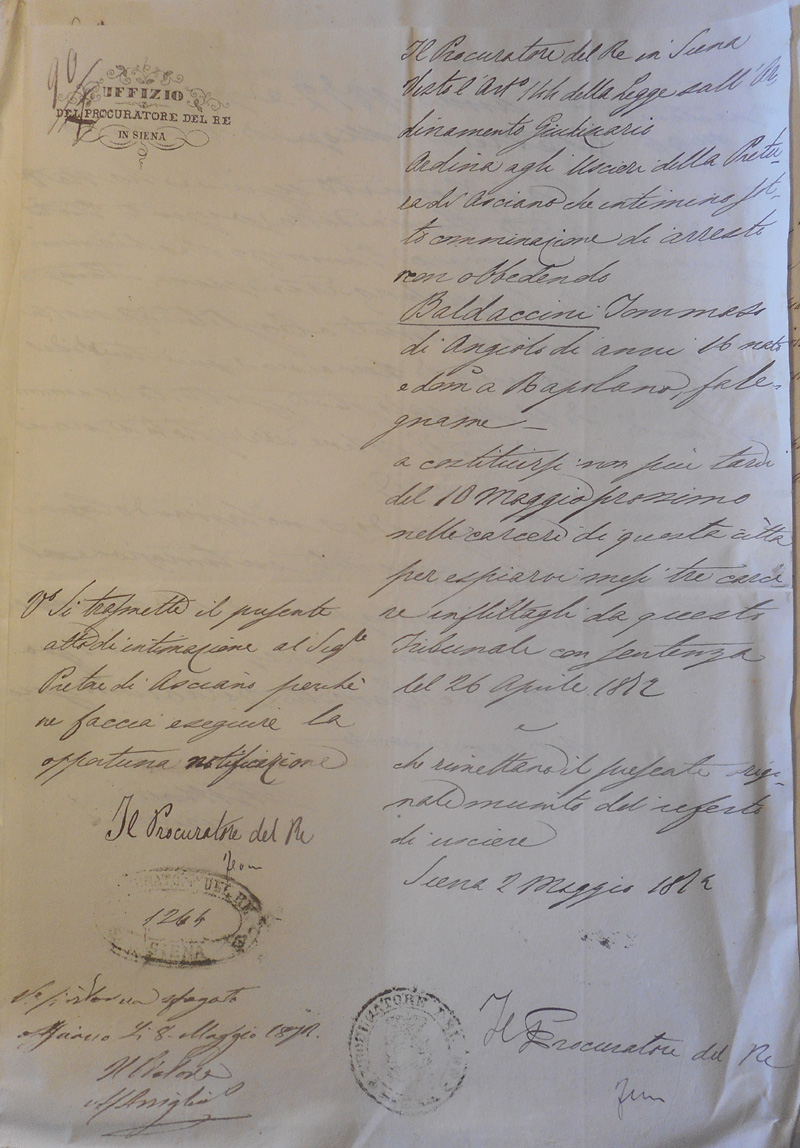 90
UFFIZIO
DEL PROCURATORE DEL RE
IN SIENA
Il Procuratore del Re in Siena
Visto l'Arto 144 della Legge sull'Or
dinamento Giudiziario
Ordina agli Uscieri della Pretu-
ra di Asciano che intimino sot-
to comminazione di arresto
non obbedendo
Baldaccini Tommaso
di Angiolo di anni 16 nato
e dom. a Rapolano, fale-
gname -
a costituirsi non più tardi
del 10 Maggio prossimo
nelle carceri di questa città
per espiarvi mesi tre carce
re inflittagli da questo
Tribunale con sentenza
del 26 Aprile 1872
e
che rimettano il presente origi-
nale munito del referto
di usciere
Siena 2 Maggio 1872
Il Procuratore del Re
Vo Si trasmette il presente
atto di intimazione al Sigre
Pretore di Asciano perchè
ne faccia eseguire la
opportuna notificazione
Il Procuratore del Re
PROCURATORE DEL RE
1264
SIENA
Asciano Li 8. Maggio 1872.
Il Pretore
PROCURATORE DEL